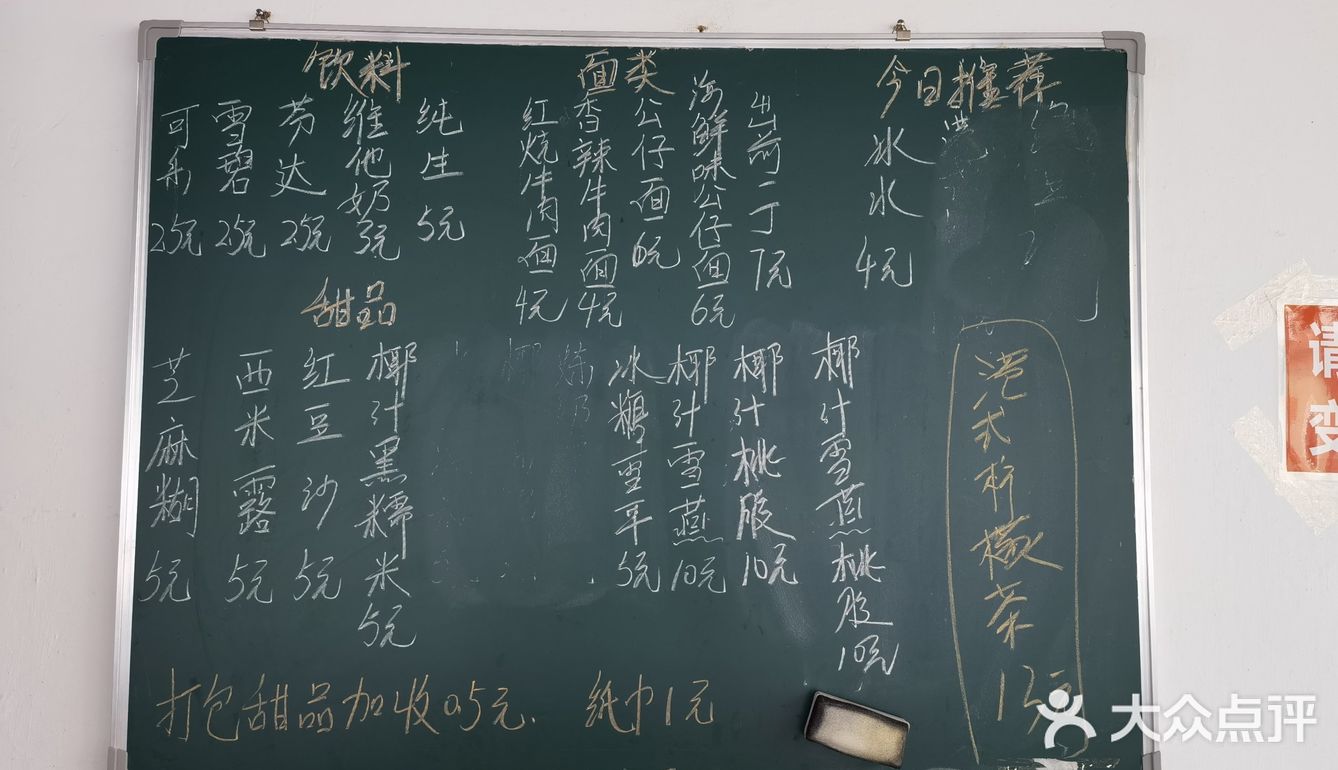 饮料
可乐 2.5元
雪碧 2.5元
芬达 2.5元
维他奶 3元
纯生 5元
面类
红烧牛肉面 4元
香辣牛肉面 4元
公仔面 6元
海鲜味公仔面 6元
出前一丁 7元
今日推荐
冰水 4元
港式柠檬茶
甜品
芝麻糊 5元
西米露 5元
红豆沙 5元
椰汁黑糯米 5元
冰糖雪耳 5元
椰汁雪燕 10元
椰汁桃胶 10元
椰汁雪燕桃胶 10元
打包甜品加收0.5元. 纸巾1元
请
变
大众点评